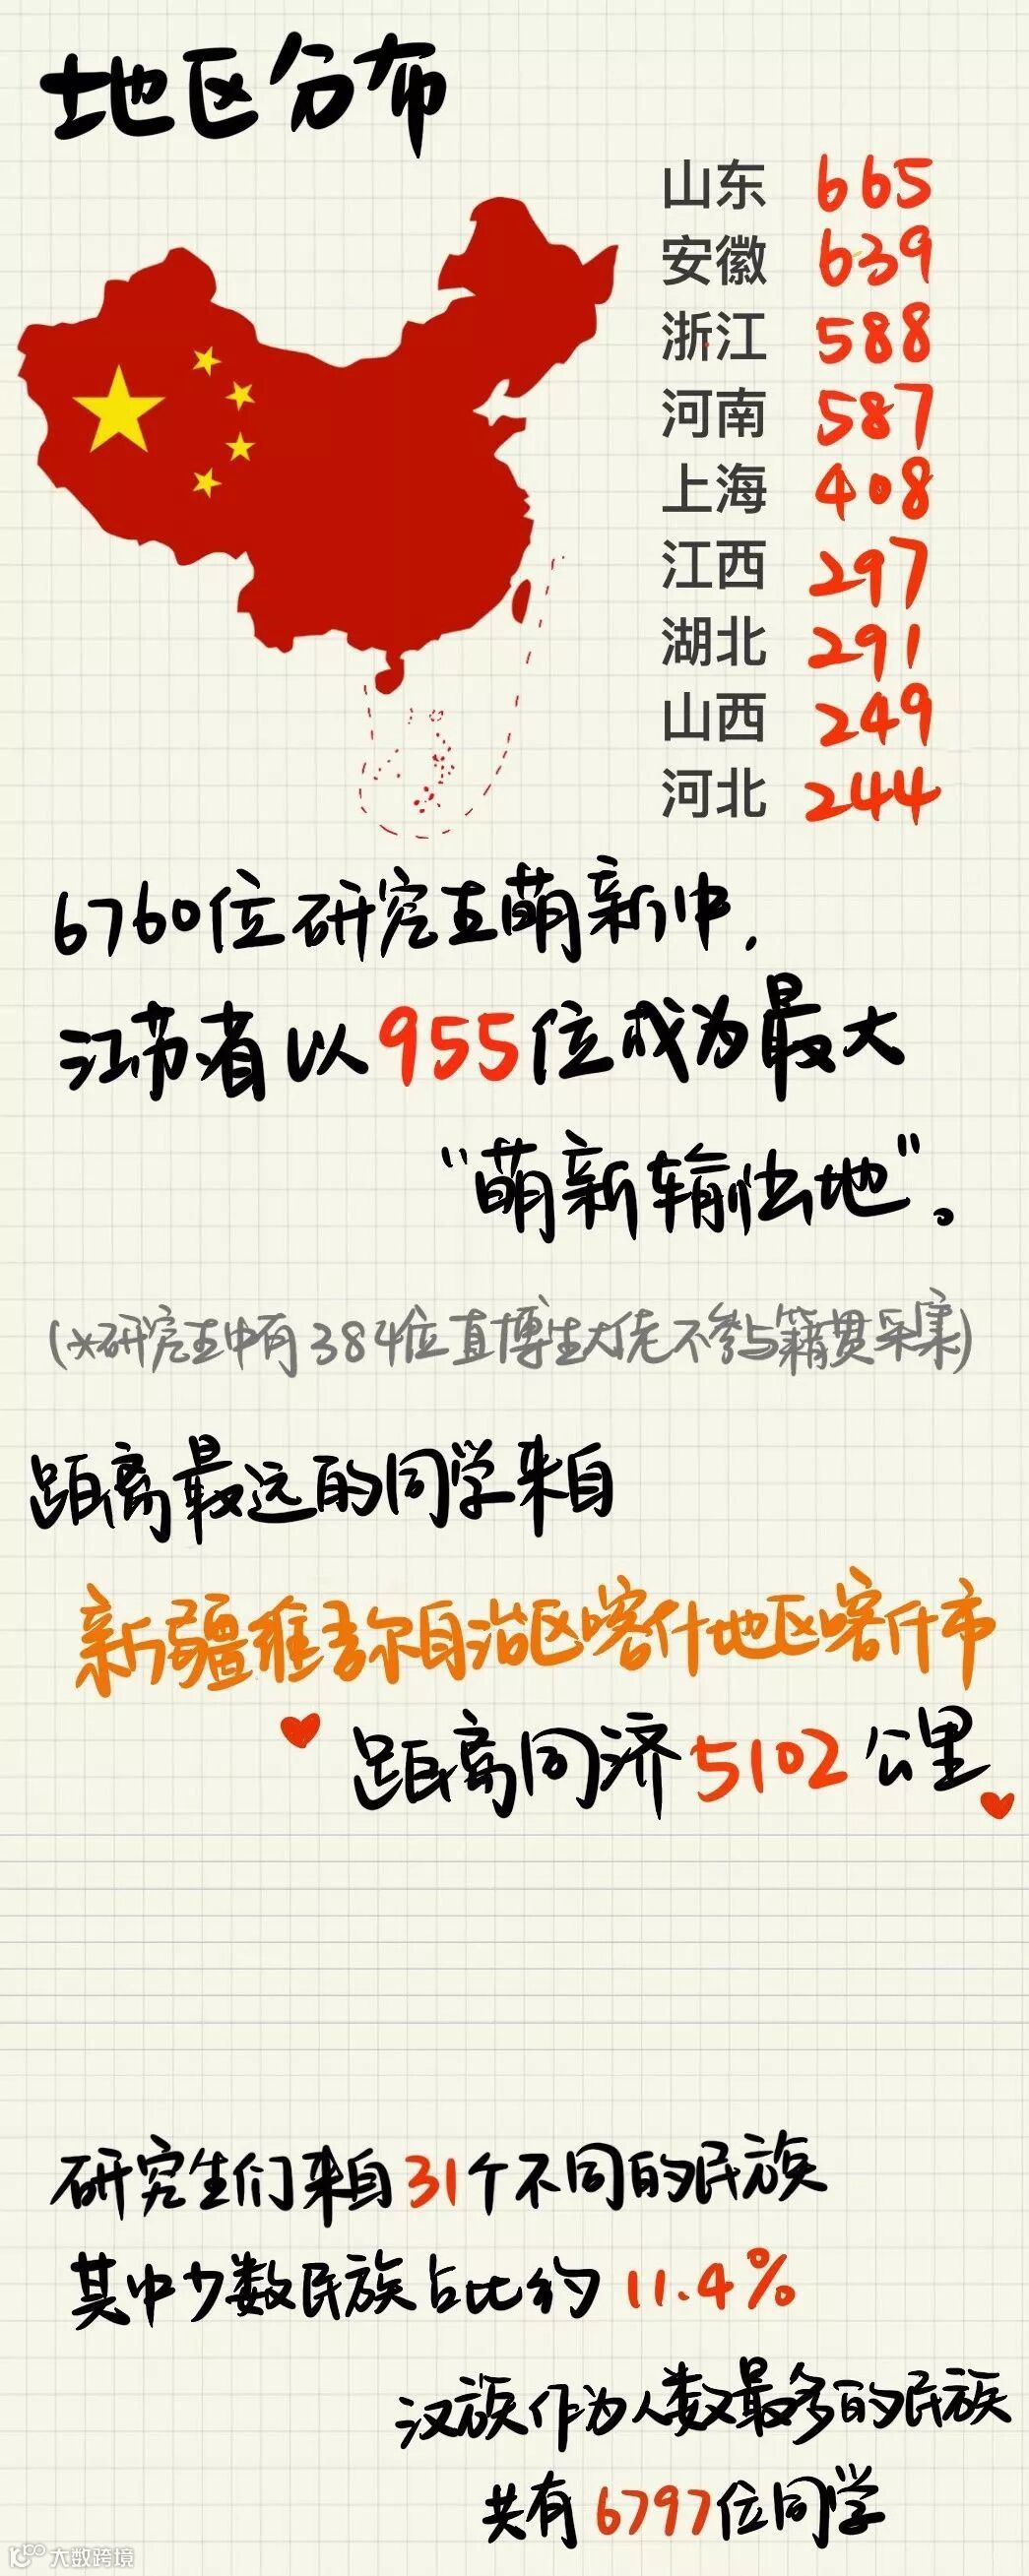 地区分布
山东 665
安徽 639
浙江 588
河南 587
上海 408
江西 297
湖北 291
山西 249
河北 244
6760位研究生萌新中，
江苏省以955位成为最大
“萌新输出地”。
(*研究生中有384位直博生大佬不参与籍贯采集)
距离最远的同学来自
新疆维吾尔自治区喀什地区喀什市
距离同济5102公里
研究生们来自31个不同的民族
其中少数民族占比约11.4%
汉族作为人数最多的民族
共有6797位同学
大数跨境